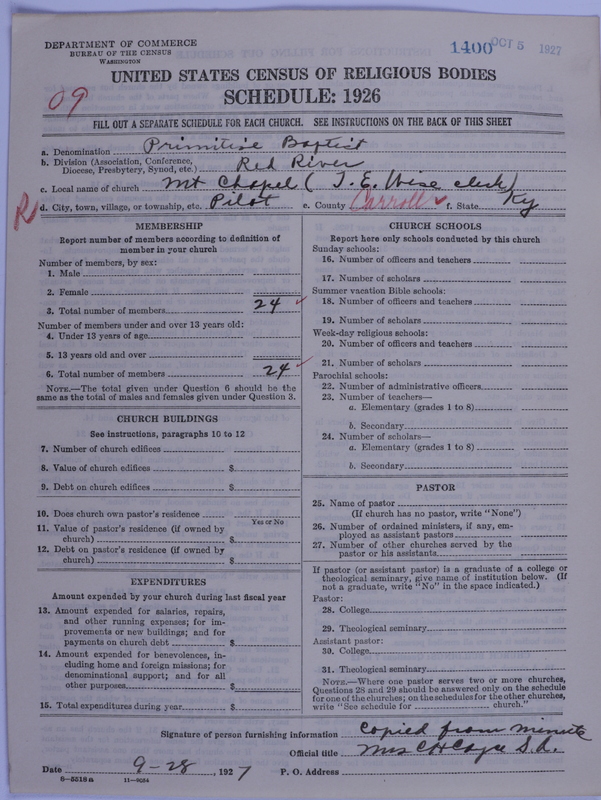 DEPARTMENT OF COMMERCE
BUREAU OF THE CENSUS
WASHINGTON
1400 OCT 5 1927
UNITED STATES CENSUS OF RELIGIOUS BODIES
SCHEDULE: 1926
09
FILL OUT A SEPARATE SCHEDULE FOR EACH CHURCH. SEE INSTRUCTIONS ON THE BACK OF THIS SHEET
a. Denomination Primitive Baptist
b. Division (Association, Conference, Diocese, Presbytery, Synod, etc.) Red River
c. Local name of church Mt Chapel (J. E. Wise clerk)
R
d. City, town, village, or township, etc. Pilot e. County Carroll f. State Ky
MEMBERSHIP
Report number of members according to definition of
member in your church
Number of members, by sex:
1. Male
2. Female
3. Total number of members 24
Number of members under and over 13 years old:
4. Under 13 years of age
5. 13 years old and over
6. Total number of members 24
NOTE.—The total given under Question 6 should be the
same as the total of males and females given under Question 3.
CHURCH BUILDINGS
See instructions, paragraphs 10 to 12
7. Number of church edifices
8. Value of church edifices $
9. Debt on church edifices $
10. Does church own pastor's residence
Yes or No
11. Value of pastor's residence (if owned by
church) $
12. Debt on pastor's residence (if owned by
church) $
EXPENDITURES
Amount expended by your church during last fiscal year
13. Amount expended for salaries, repairs,
and other running expenses; for im-
provements or new buildings; and for
payments on church debt $
14. Amount expended for benevolences, in-
cluding home and foreign missions; for
denominational support; and for all
other purposes $
15. Total expenditures during year $
CHURCH SCHOOLS
Report here only schools conducted by this church
Sunday schools:
16. Number of officers and teachers
17. Number of scholars
Summer vacation Bible schools:
18. Number of officers and teachers
19. Number of scholars
Week-day religious schools:
20. Number of officers and teachers
21. Number of scholars
Parochial schools:
22. Number of administrative officers
23. Number of teachers—
a. Elementary (grades 1 to 8)
b. Secondary
24. Number of scholars—
a. Elementary (grades 1 to 8)
b. Secondary
PASTOR
25. Name of pastor
(If church has no pastor, write "None")
26. Number of ordained ministers, if any, em-
ployed as assistant pastors
27. Number of other churches served by the
pastor or his assistants
If pastor (or assistant pastor) is a graduate of a college or
theological seminary, give name of institution below. (If
not a graduate, write "No" in the space indicated.)
Pastor:
28. College
29. Theological seminary
Assistant pastor:
30. College
31. Theological seminary
NOTE.—Where one pastor serves two or more churches,
Questions 28 and 29 should be answered only on the schedule
for one of the churches; on the schedules for the other churches,
write "See schedule for church."
Signature of person furnishing information Copied from minute
Official title Mrs S. A.
Date 9-28, 1927 P. O. Address
6-5518a 11-9054